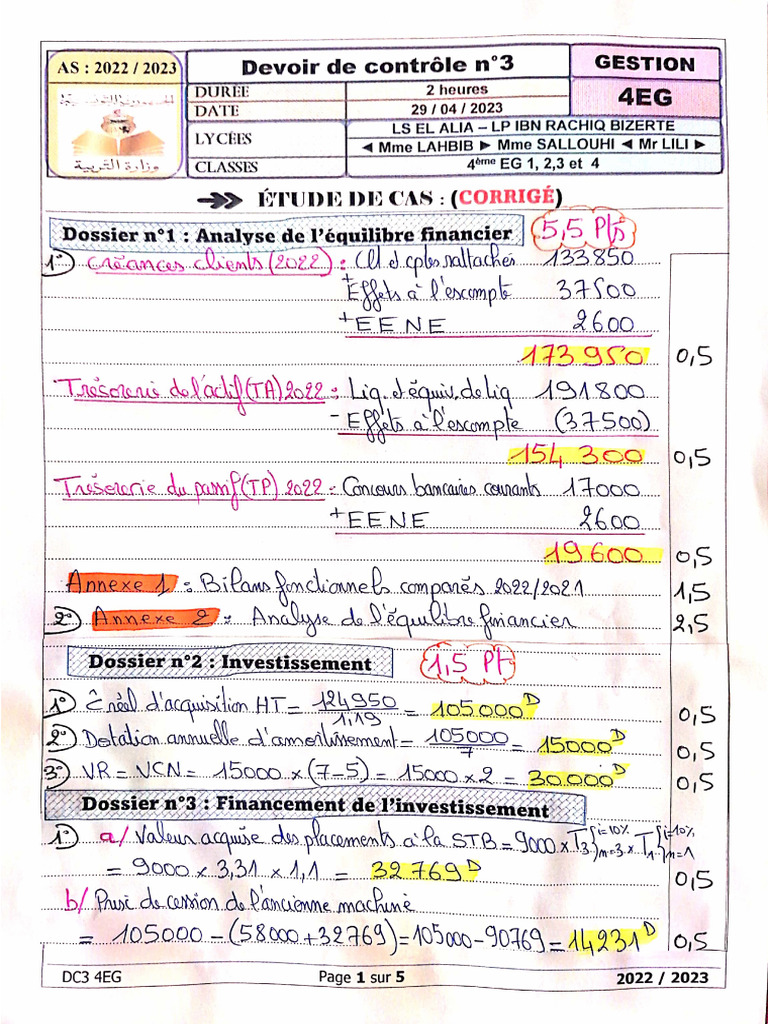 AS : 2022 / 2023
Devoir de contrôle n°3
GESTION
DURÉE
2 heures
4EG
DATE
29 / 04 / 2023
LYCÉES
LS EL ALIA – LP IBN RACHIQ BIZERTE
◄ Mme LAHBIB ► Mme SALLOUHI ◄ Mr LILI ►
CLASSES
4ème EG 1, 2,3 et 4
وزارة التربية
ÉTUDE DE CAS : (CORRIGÉ)
Dossier n°1 : Analyse de l'équilibre financier 5,5 Pts
1° Créances clients (2022) : Cl et cptes rattachés 133 850
+ Effets à l'escompte 37500
+ EENE 2600
173 950 0,5
Trésorerie de l'actif (TA) 2022 : Liq. et équiv. de liq 191 800
- Effets à l'escompte (37 500)
154 300 0,5
Trésorerie du passif (TP) 2022 : Concours bancaires courants 17000
+ EENE 2600
19 600 0,5
Annexe 1 : Bilans fonctionnels comparés 2022/2021 1,5
2° Annexe 2 : Analyse de l'équilibre financier 2,5
Dossier n°2 : Investissement 1,5 Pt
1° C réel d'acquisition HT = 124950 / 1,19 = 105 000 D 0,5
2° Dotation annuelle d'amortissement = 105000 / 7 = 15000 D 0,5
3° VR = VCN = 15000 × (7-5) = 15000 × 2 = 30.000 D 0,5
Dossier n°3 : Financement de l'investissement
1° a/ Valeur acquise des placements à la STB = 9000 × T3 } i=10% n=3 × T1 } i=10% n=1
= 9000 × 3,31 × 1,1 = 32 769 D 0,5
b/ Prix de cession de l'ancienne machine
= 105000 - (58000 + 32769) = 105000 - 90769 = 14231 D 0,5
DC3 4EG
Page 1 sur 5
2022 / 2023